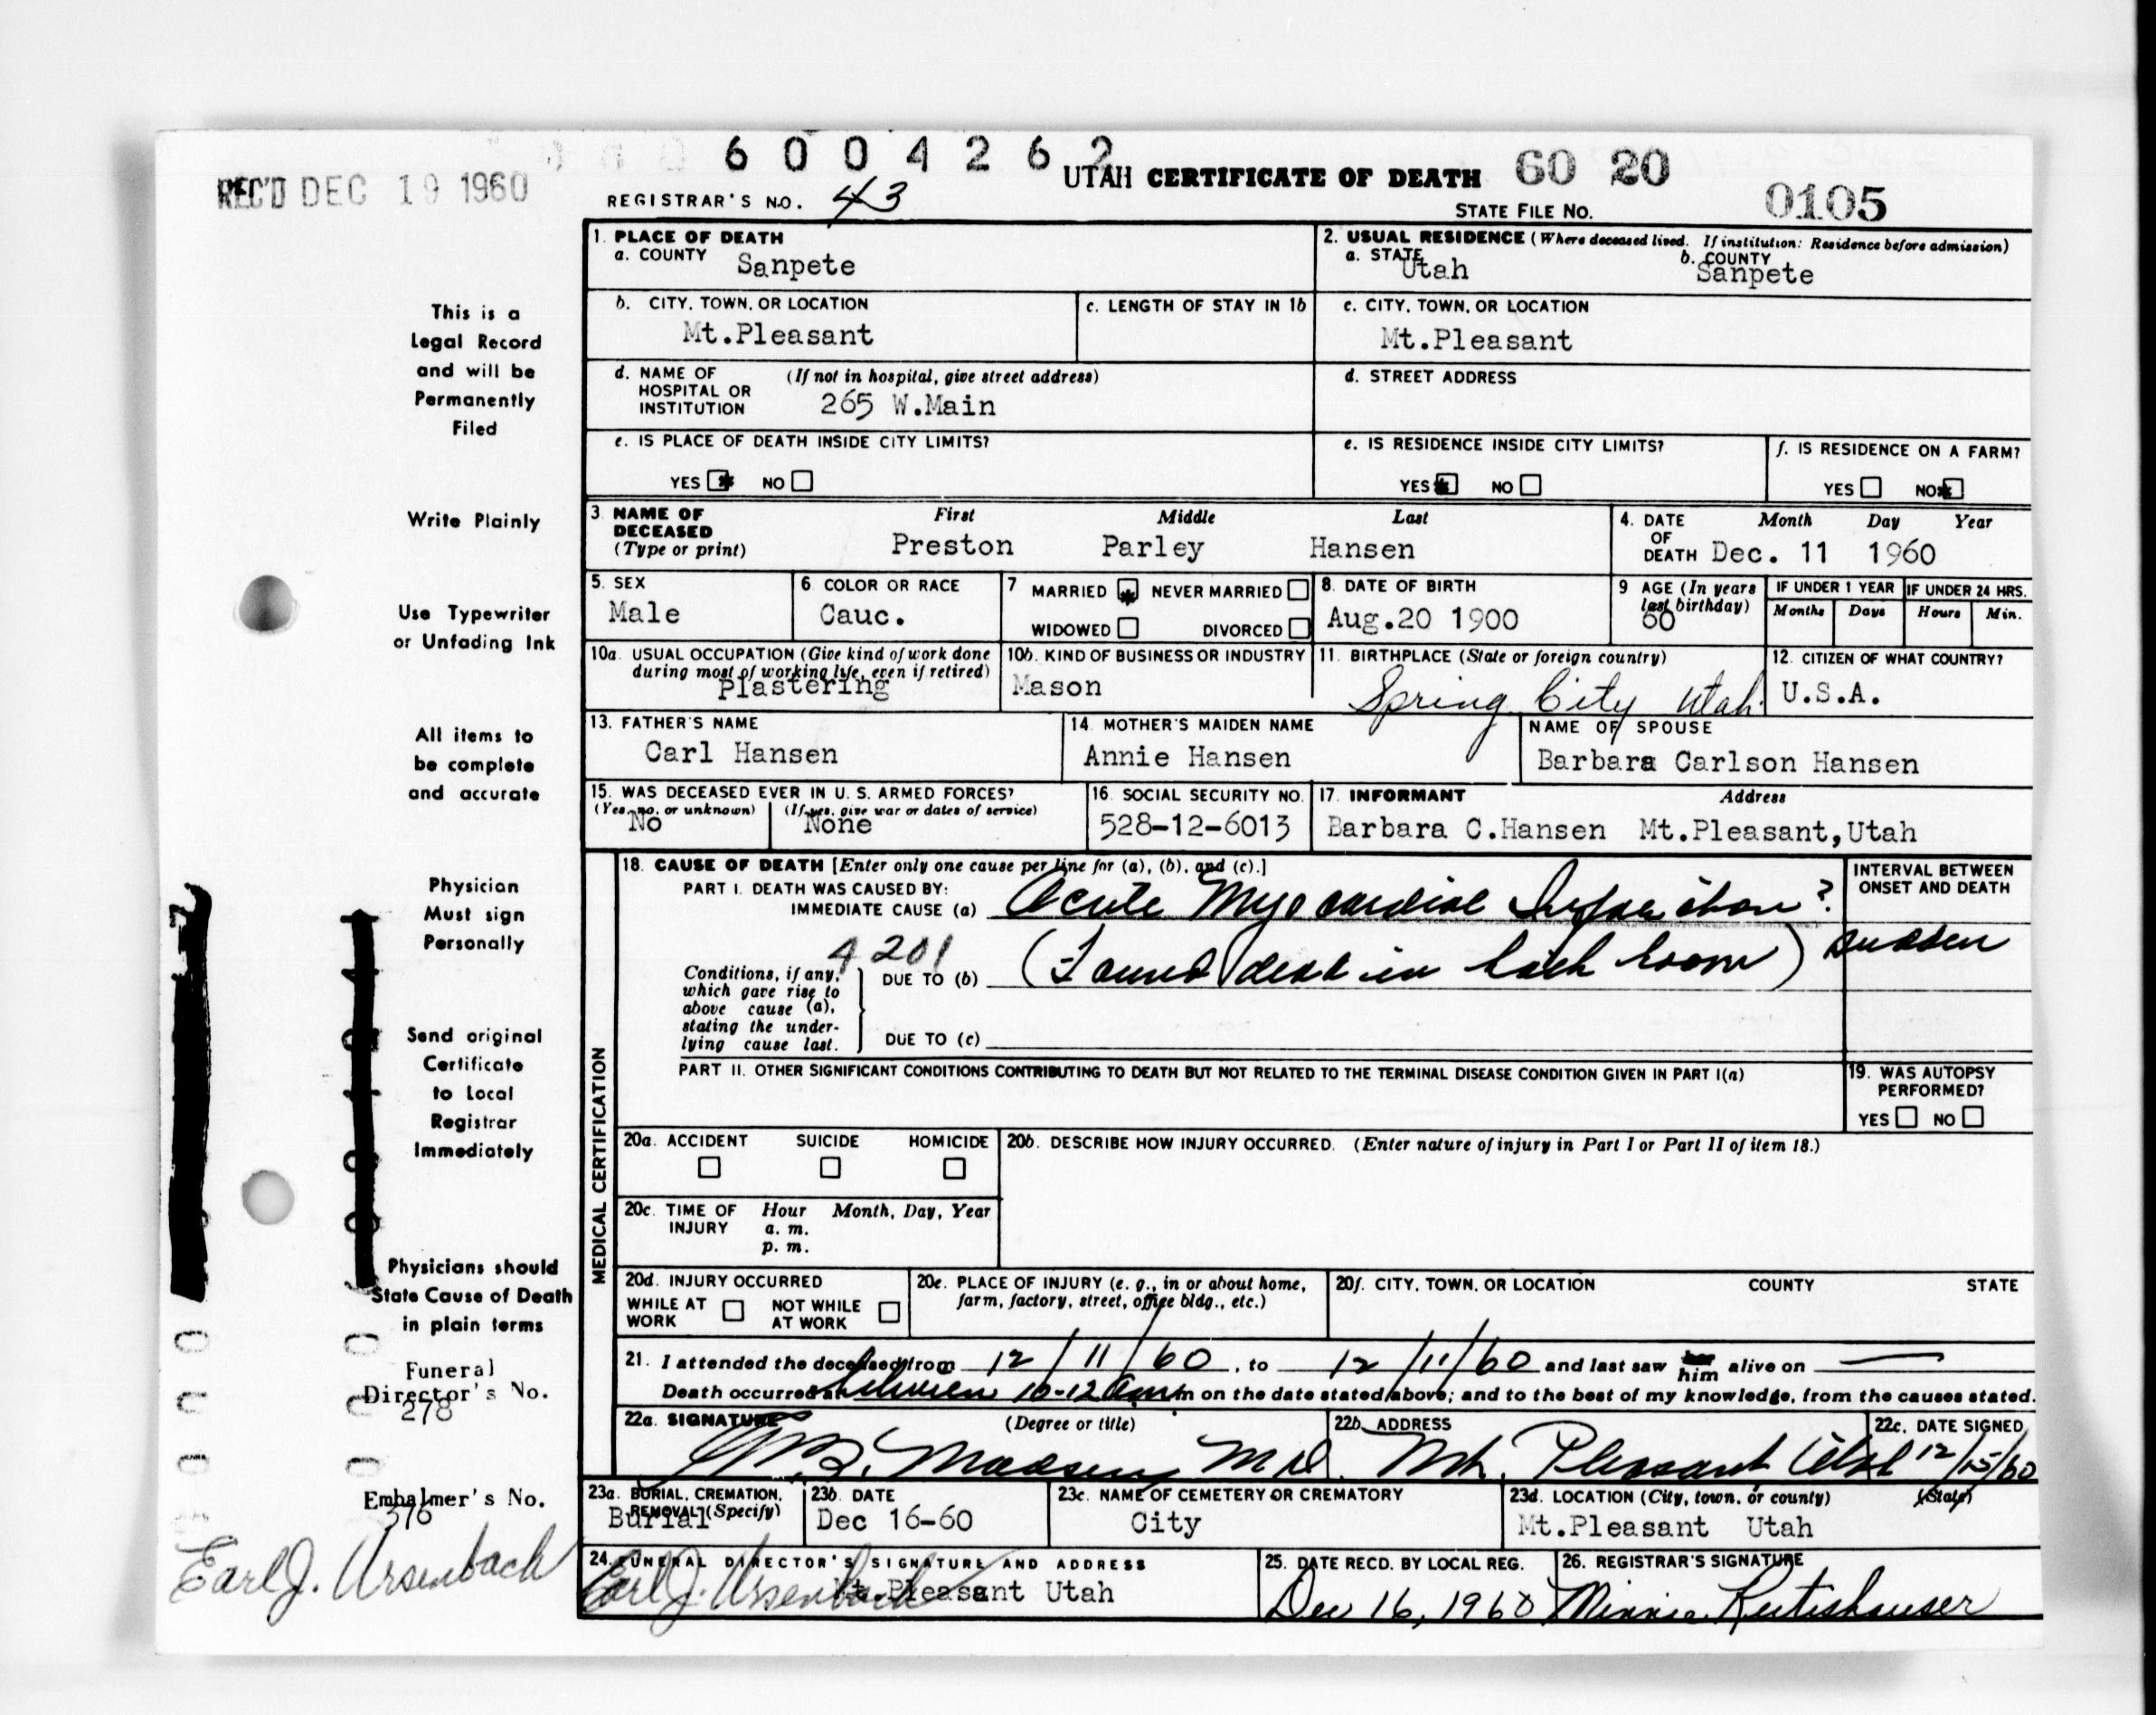 6 0 0 4 2 6 2
REC'D DEC 19 1960
UTAH CERTIFICATE OF DEATH 60 20
REGISTRAR'S NO. 43
STATE FILE NO. 0105
This is a
Legal Record
and will be
Permanently
Filed
Write Plainly
Use Typewriter
or Unfading Ink
All items to
be complete
and accurate
Physician
Must sign
Personally
Send original
Certificate
to Local
Registrar
Immediately
Physicians should
State Cause of Death
in plain terms
Funeral
Director's No.
278
Embalmer's No.
376
Earl J. Ursenbach
1. PLACE OF DEATH
a. COUNTY Sanpete
2. USUAL RESIDENCE (Where deceased lived. If institution: Residence before admission)
a. STATE Utah b. COUNTY Sanpete
b. CITY, TOWN, OR LOCATION
Mt.Pleasant
c. LENGTH OF STAY IN 1b
c. CITY, TOWN, OR LOCATION
Mt.Pleasant
d. NAME OF HOSPITAL OR INSTITUTION (If not in hospital, give street address)
265 W.Main
d. STREET ADDRESS
e. IS PLACE OF DEATH INSIDE CITY LIMITS?
YES NO
e. IS RESIDENCE INSIDE CITY LIMITS?
YES NO
f. IS RESIDENCE ON A FARM?
YES NO
3. NAME OF DECEASED (Type or print)
First Middle Last
Preston Parley Hansen
4. DATE OF DEATH Month Day Year
Dec. 11 1960
5. SEX
Male
6. COLOR OR RACE
Cauc.
7 MARRIED NEVER MARRIED
WIDOWED DIVORCED
8. DATE OF BIRTH
Aug.20 1900
9 AGE (In years last birthday)
60
IF UNDER 1 YEAR
Months Days
IF UNDER 24 HRS.
Hours Min.
10a. USUAL OCCUPATION (Give kind of work done during most of working life, even if retired)
Plastering
10b. KIND OF BUSINESS OR INDUSTRY
Mason
11. BIRTHPLACE (State or foreign country)
Spring City Utah
12. CITIZEN OF WHAT COUNTRY?
U.S.A.
13. FATHER'S NAME
Carl Hansen
14. MOTHER'S MAIDEN NAME
Annie Hansen
NAME OF SPOUSE
Barbara Carlson Hansen
15. WAS DECEASED EVER IN U. S. ARMED FORCES?
(Yes, no, or unknown) (If yes, give war or dates of service)
No None
16. SOCIAL SECURITY NO.
528-12-6013
17. INFORMANT Address
Barbara C.Hansen Mt.Pleasant,Utah
MEDICAL CERTIFICATION
18. CAUSE OF DEATH [Enter only one cause per line for (a), (b), and (c).]
PART I. DEATH WAS CAUSED BY:
IMMEDIATE CAUSE (a) Acute Myocardial Infarction ?
INTERVAL BETWEEN ONSET AND DEATH
sudden
4201
Conditions, if any, which gave rise to above cause (a), stating the underlying cause last.
DUE TO (b) (Found dead in bath room)
DUE TO (c)
PART II. OTHER SIGNIFICANT CONDITIONS CONTRIBUTING TO DEATH BUT NOT RELATED TO THE TERMINAL DISEASE CONDITION GIVEN IN PART I(a)
19. WAS AUTOPSY PERFORMED?
YES NO
20a. ACCIDENT SUICIDE HOMICIDE
20b. DESCRIBE HOW INJURY OCCURRED. (Enter nature of injury in Part I or Part II of item 18.)
20c. TIME OF INJURY Hour Month, Day, Year
a. m.
p. m.
20d. INJURY OCCURRED
WHILE AT WORK NOT WHILE AT WORK
20e. PLACE OF INJURY (e. g., in or about home, farm, factory, street, office bldg., etc.)
20f. CITY, TOWN, OR LOCATION COUNTY STATE
21. I attended the deceased from 12/11/60, to 12/11/60 and last saw her him alive on —
Death occurred at between 10-12 am m on the date stated above; and to the best of my knowledge, from the causes stated.
22a. SIGNATURE (Degree or title)
Madsen M D.
22b. ADDRESS
Mt. Pleasant Utah
22c. DATE SIGNED
12/15/60
23a. BURIAL, CREMATION, REMOVAL (Specify)
Burial
23b. DATE
Dec 16-60
23c. NAME OF CEMETERY OR CREMATORY
City
23d. LOCATION (City, town, or county) (State)
Mt.Pleasant Utah
24. FUNERAL DIRECTOR'S SIGNATURE AND ADDRESS
Earl J. Ursenbach Mt.Pleasant Utah
25. DATE RECD. BY LOCAL REG.
Dec 16, 1960
26. REGISTRAR'S SIGNATURE
Minnie Rutishauser